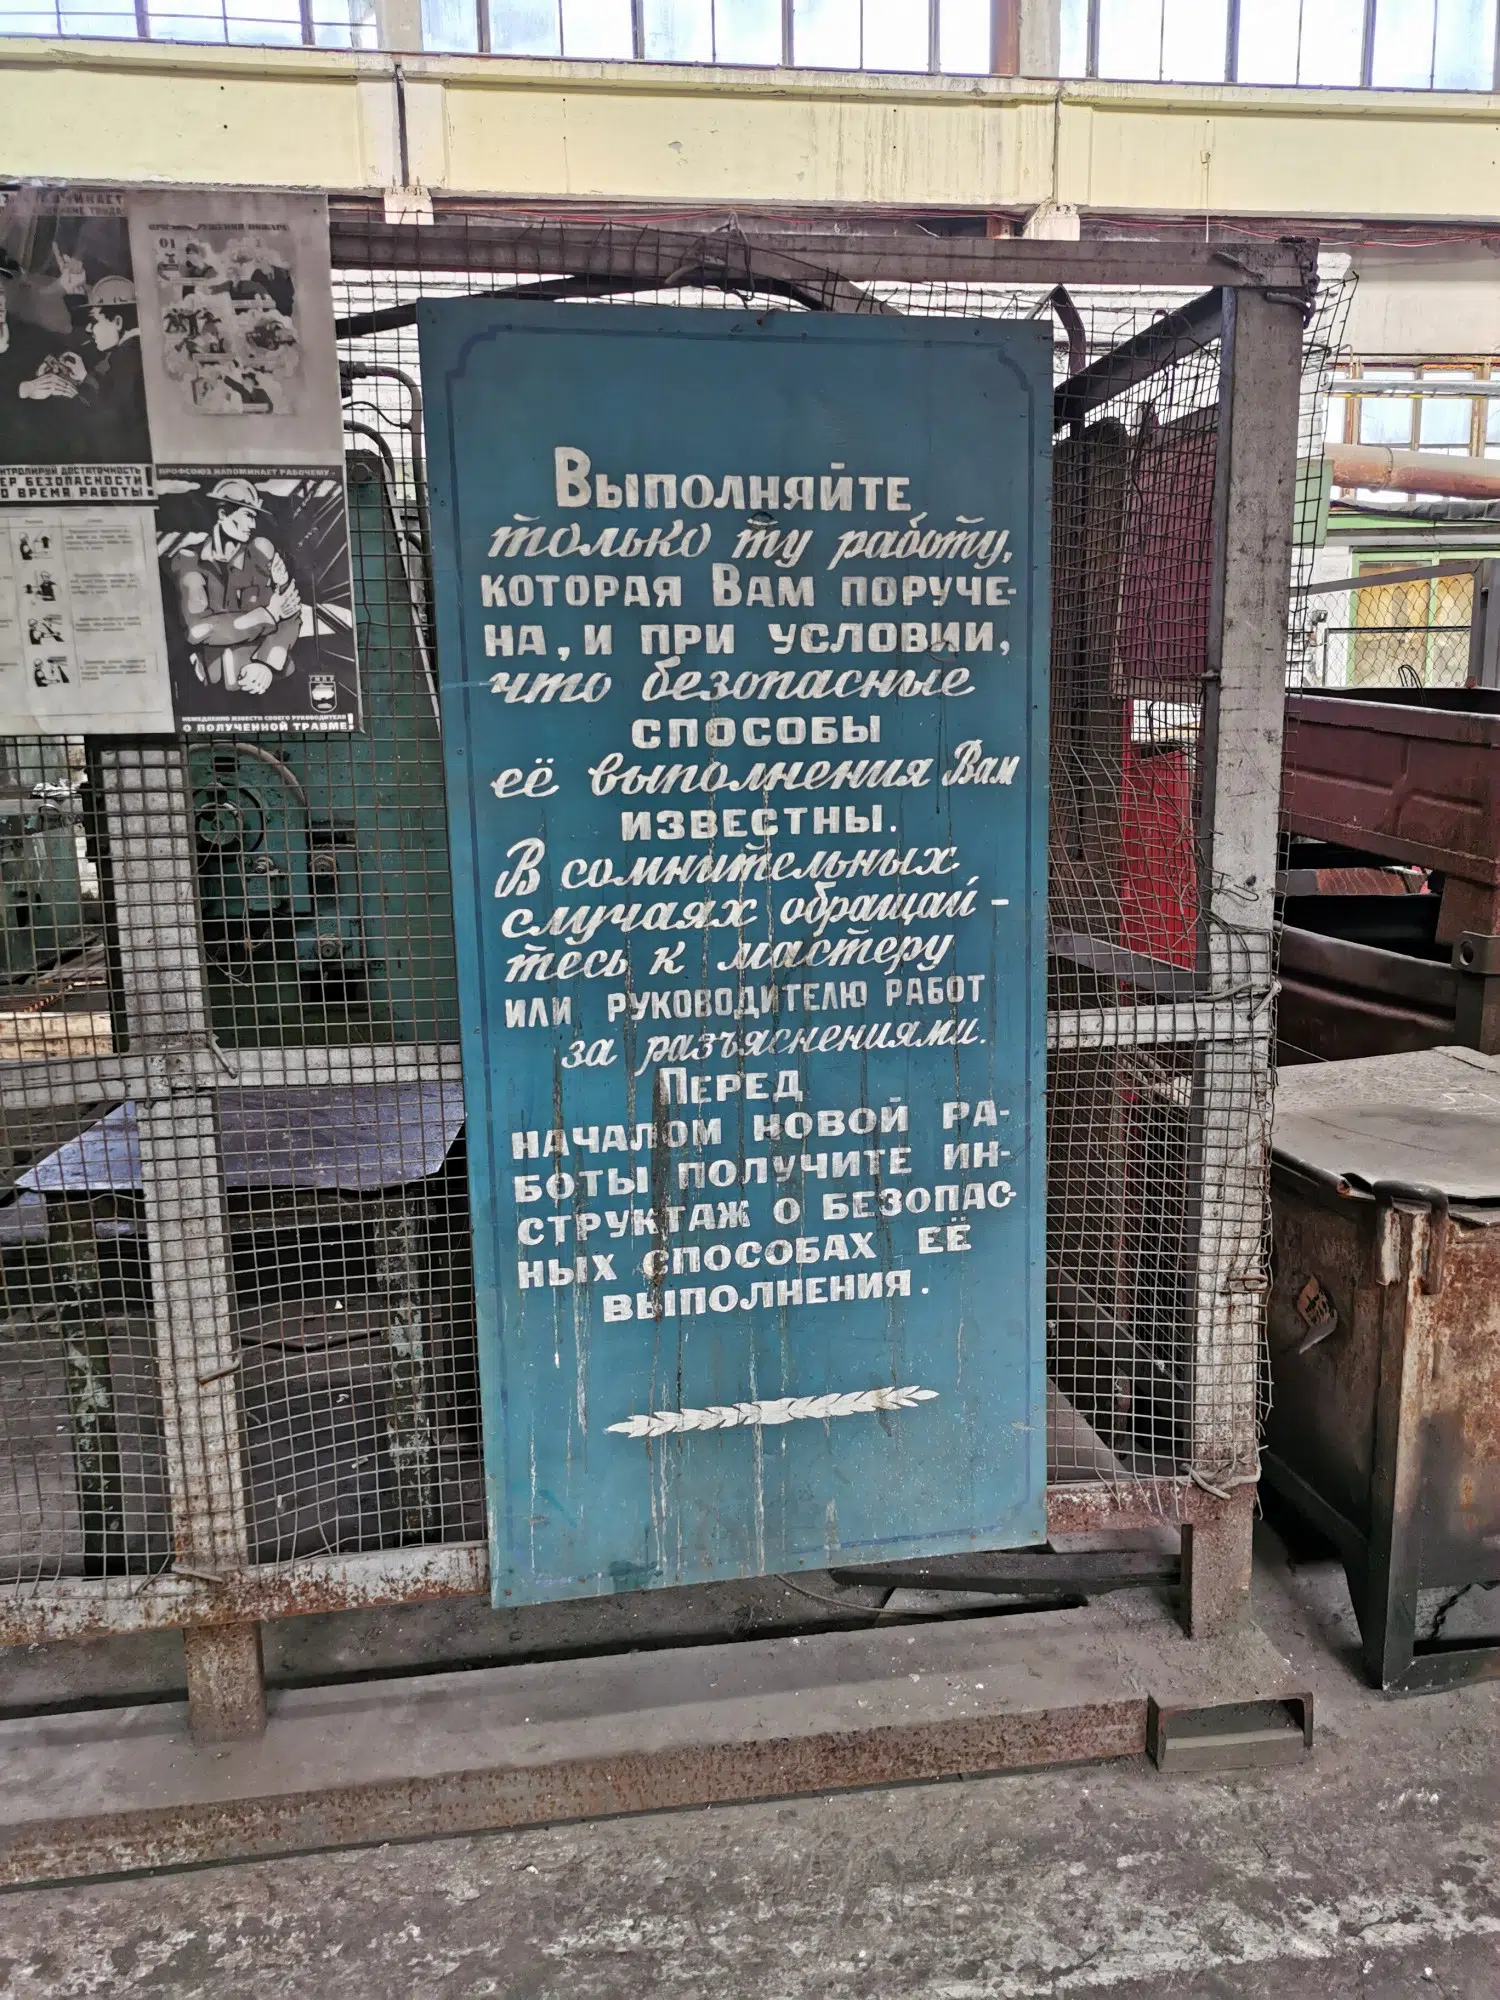 01
КОНТРОЛИРУЙ ДОСТАТОЧНОСТЬ
МЕР БЕЗОПАСНОСТИ
ВО ВРЕМЯ РАБОТЫ!
ПРОФСОЮЗ НАПОМИНАЕТ РАБОЧЕМУ-
НЕМЕДЛЕННО ИЗВЕСТИ СВОЕГО РУКОВОДИТЕЛЯ
О ПОЛУЧЕННОЙ ТРАВМЕ!
ВЫПОЛНЯЙТЕ
только ту работу,
КОТОРАЯ ВАМ ПОРУЧЕ-
НА, И ПРИ УСЛОВИИ,
что безопасные
СПОСОБЫ
её выполнения Вам
ИЗВЕСТНЫ.
В сомнительных
случаях обращай-
тесь к мастеру
ИЛИ РУКОВОДИТЕЛЮ РАБОТ
за разъяснениями.
ПЕРЕД
НАЧАЛОМ НОВОЙ РА-
БОТЫ ПОЛУЧИТЕ ИН-
СТРУКТАЖ О БЕЗОПАС-
НЫХ СПОСОБАХ ЕЁ
ВЫПОЛНЕНИЯ.